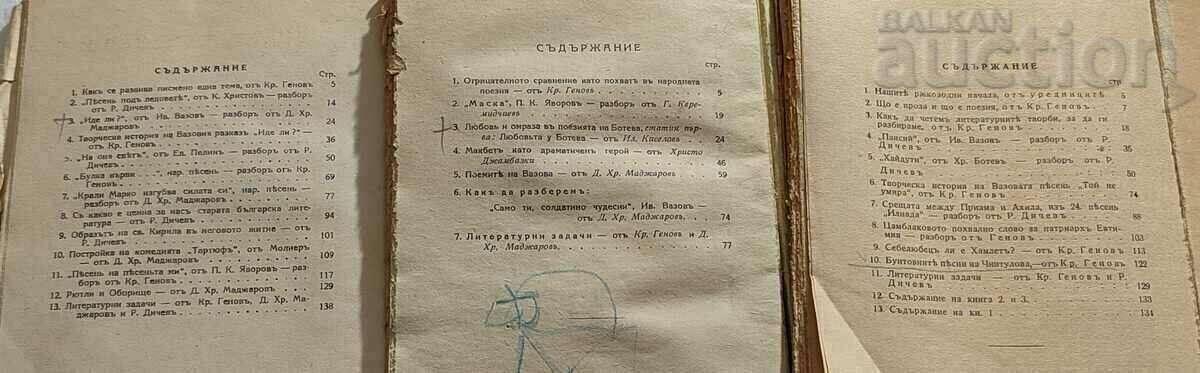 СЪДЪРЖАНИЕ
Стр.
1. Какъ се развива писмено една тема, отъ Кр. Геновъ 5
2. „Пѣсень подъ ледоветѣ“, отъ К. Христовъ — разборъ
отъ Р. Дичевъ 14
3. „Иде ли?“, отъ Ив. Вазовъ — разборъ отъ Д. Хр.
Маджаровъ 24
4. Творческа история на Вазовия разказъ „Иде ли?“ —
отъ Кр. Геновъ 36
5. „На оня свѣтъ“, отъ Ел. Пелинъ — разборъ отъ Р.
Дичевъ 50
6. „Булка върви . . .“, нар. пѣсень — разборъ отъ Кр.
Геновъ 69
7. „Крали Марко изгубва силата си“, нар. пѣсень —
разборъ отъ Д. Хр. Маджаровъ 77
8. Съ какво е ценна за насъ старата българска лите-
ратура — отъ Р. Дичевъ 94
9. Образътъ на св. Кирила въ неговото житие — отъ
Р. Дичевъ 101
10. Постройка на комедията „Тартюфъ“, отъ Молиеръ
— отъ Д. Хр. Маджаровъ 109
11. „Пѣсень на пѣсеньта ми“, отъ П. К. Яворовъ — раз-
боръ отъ Кр. Геновъ 117
12. Рютли и Оборище — отъ Д. Хр. Маджаровъ 129
13. Литературни задачи — отъ Кр. Геновъ, Д. Хр. Ма-
джаровъ и Р. Дичевъ 138
СЪДЪРЖАНИЕ
стр.
1. Отрицателното сравнение като похватъ въ народната
поезия — отъ Кр. Геновъ 5
2. „Маска“, П. К. Яворовъ — разборъ отъ Г. Кере-
мидчиевъ 19
3. Любовь и омраза въ поезията на Ботева, статия пър-
ва: Любовьта у Ботева — отъ Ил. Киселовъ 24
4. Макбетъ като драматиченъ герой — отъ Христо
Джамбазки 46
5. Поемитѣ на Вазова — отъ Д. Хр. Маджаровъ 59
6. Какъ да разберемъ:
„Само ти, солдатино чудесни“, Ив. Вазовъ —
отъ Д. Хр. Маджаровъ 74
7. Литературни задачи — отъ Кр. Геновъ и Д.
Хр. Маджаровъ 77
BALKAN
auction
СЪДЪРЖАНИЕ
стр.
1. Нашитѣ ржководни начала, отъ уредницитѣ 5
2. Що е проза и що е поезия, отъ Кр. Геновъ 7
3. Какъ да четемъ литературнитѣ творби, за да ги
разбираме, отъ Кр. Геновъ 18
4. „Пансий“, отъ Ив. Вазовъ — разборъ отъ Р.
Дичевъ 35
5. „Хайдути“, отъ Хр. Ботевъ — разборъ отъ Р.
Дичевъ 50
6. Творческа история на Вазовата пѣсень „Той не
умира“, отъ Кр. Геновъ 74
7. Срещата между Приама и Ахила, изъ 24. пѣсень
„Илиада“ — разборъ отъ Р. Дичевъ 88
8. Цамблаковото похвално слово за патриархъ Евти-
мия — разборъ отъ Р. Дичевъ 103
9. Себелюбецъ ли е Хамлетъ? — отъ Кр. Геновъ 113
10. Бунтовнитѣ пѣсни на Чинтулова, — отъ Кр. Геновъ 122
11. Литературни задачи — отъ Кр. Геновъ и Р.
Дичевъ 129
12. Съдържание на книга 2. и 3. 133
13. Съдържание на кн. I 134